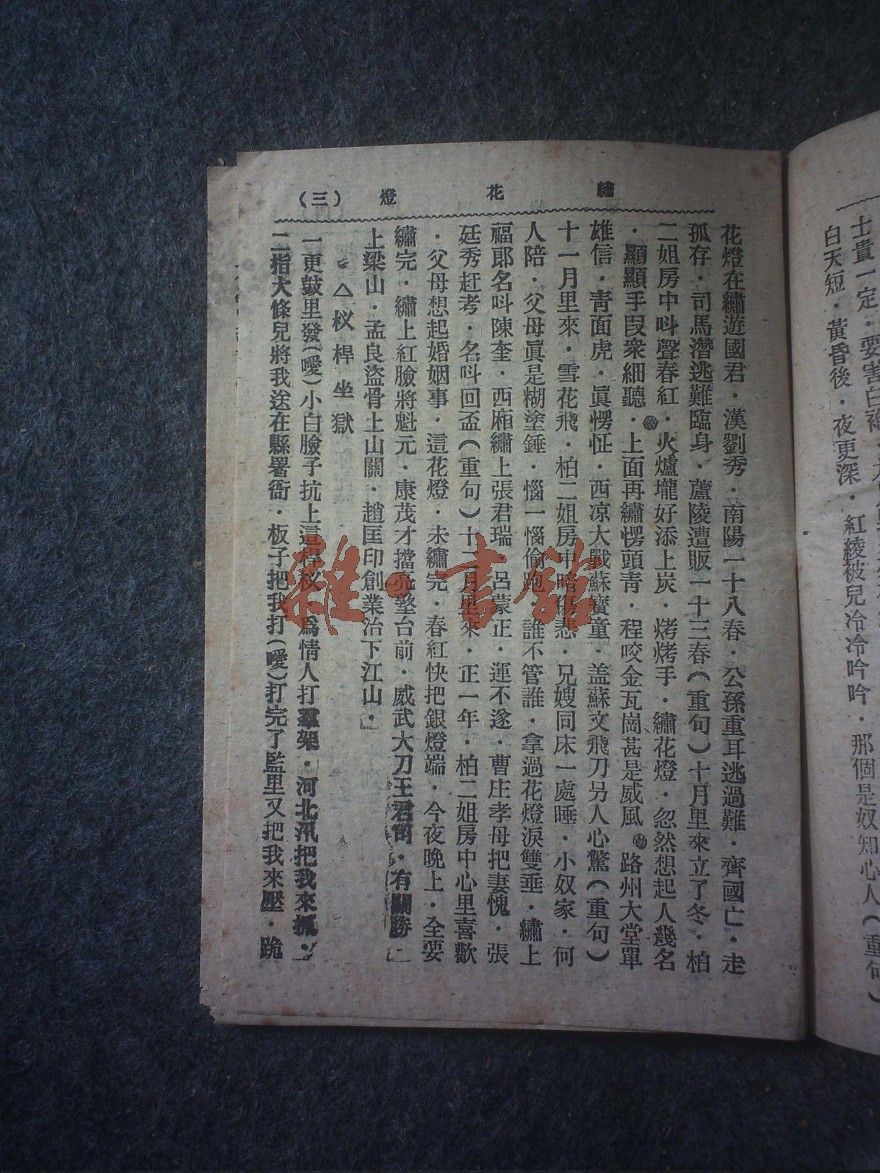 士貴一定·要害白袍
白天短·黃昏後·夜更深·紅綾被兒冷冷吟吟·那個是奴知心人(重句)
繡花燈 (三)
花燈在繡遊國君·漢劉秀·南陽一十八春·公孫重耳逃過難·齊國亡·走
孤存·司馬潛逃難臨身·蘆陵遭販一十三春(重句)十月里來立了冬·柏
二姐房中呌聲春紅·火爐壠好添上炭·烤烤手·繡花燈·忽然想起人幾名
·顯顯手段衆細聽·上面再繡愣頭青·程咬金瓦崗甚是威風 路州大堂單
雄信·青面虎·眞愣怔·西凉大戰蘇寶童·盖蘇文飛刀另人心驚(重句)
十一月里來·雪花飛·柏二姐房中暗傷悲·兄嫂同床一處睡·小奴家·何
人陪·父母眞是糊塗錘·惱一惱偷跑·誰不管誰·拿過花燈淚雙垂·繡上
福郎名呌陳奎·西廂繡上張君瑞·呂蒙正·運不遂·曹庄孝母把妻愧·張
廷秀赶考·名呌回盃(重句)十二月里來·正一年·柏二姐房中心里喜歡
·父母想起婚姻事·這花燈·未繡完·春紅快把銀燈端·今夜晚上·全要
繡完·繡上紅臉將魁元·康茂才擋亮墊台前·威武大刀王君可·有關勝
上梁山·孟良盜骨上山關·趙匡印創業治下江山·
△杈桿坐獄
一更鼓里發(噯)小白臉子抗上這桿杈·爲情人打羣架·河北汛把我來抓·
二指大條兒將我送在縣署衙·板子把我打(噯)打完了監里又把我來壓·跪
雜·書館